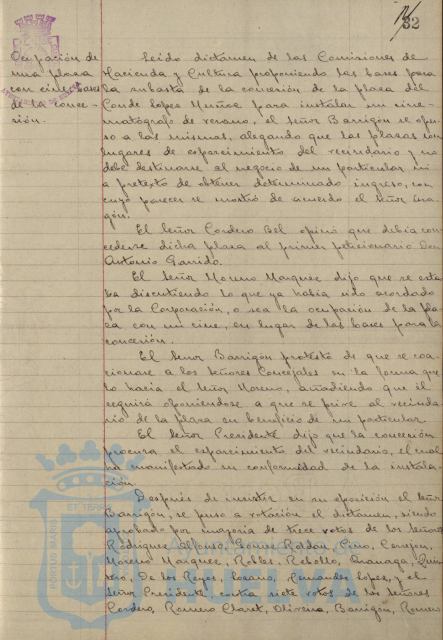 32
Ocupación de
una plaza
con cine, bases
de la conce-
sión.
Leido dictamen de las Comisiones de
Hacienda y Cultura proponiendo las bases para
la subasta de la concesión de la plaza del
Conde López Muñoz para instalar un cine-
matógrafo de verano, el Señor Barrigón se opu-
so a las mismas, alegando que las plazas son
lugares de esparcimiento del vecindario y no
debe destinarse al negocio de un particular ni
a pretexto de obtener determinado ingreso, con
cuyo parecer se mostró de acuerdo el Señor
El Señor Cordero Bel opinó que debia con-
cederse dicha plaza al primer peticionario Don
Antonio Garrido.
El Señor Moreno Marquez dijo que se esta-
ba discutiendo lo que ya habia sido acordado
por la Corporación, o sea la ocupación de la pla-
za con un cine, en lugar de las bases para la
concesión.
El Señor Barrigón protestó de que se coa-
cionase a los Señores Concejales en la forma que
lo hacia el Señor Moreno, añadiendo que él
seguirá oponiendose a que se prive al vecinda-
rio de la plaza en beneficio de un particular.
El Señor Presidente dijo que la concesión
procura el esparcimiento del vecindario, el cual
ha manifestado su conformidad de la instala-
ción.
Después de insistir en su oposición el Señor
Barrigón, se puso a votación el dictamen, siendo
aprobado por mayoria de trece votos de los Señores
Rodriguez Alfonso, Gomez Roldán, Pino, Cerrejon,
Moreno Marquez, Robles, Rebollo, Quin-
tero, De los Reyes, Lozano, Fernandez López, y el
Señor Presidente, contra siete votos de los Señores
Cordero, Romero Claret, Oliveira, Barrigón, Romero
Ayuntamiento de
HUELVA